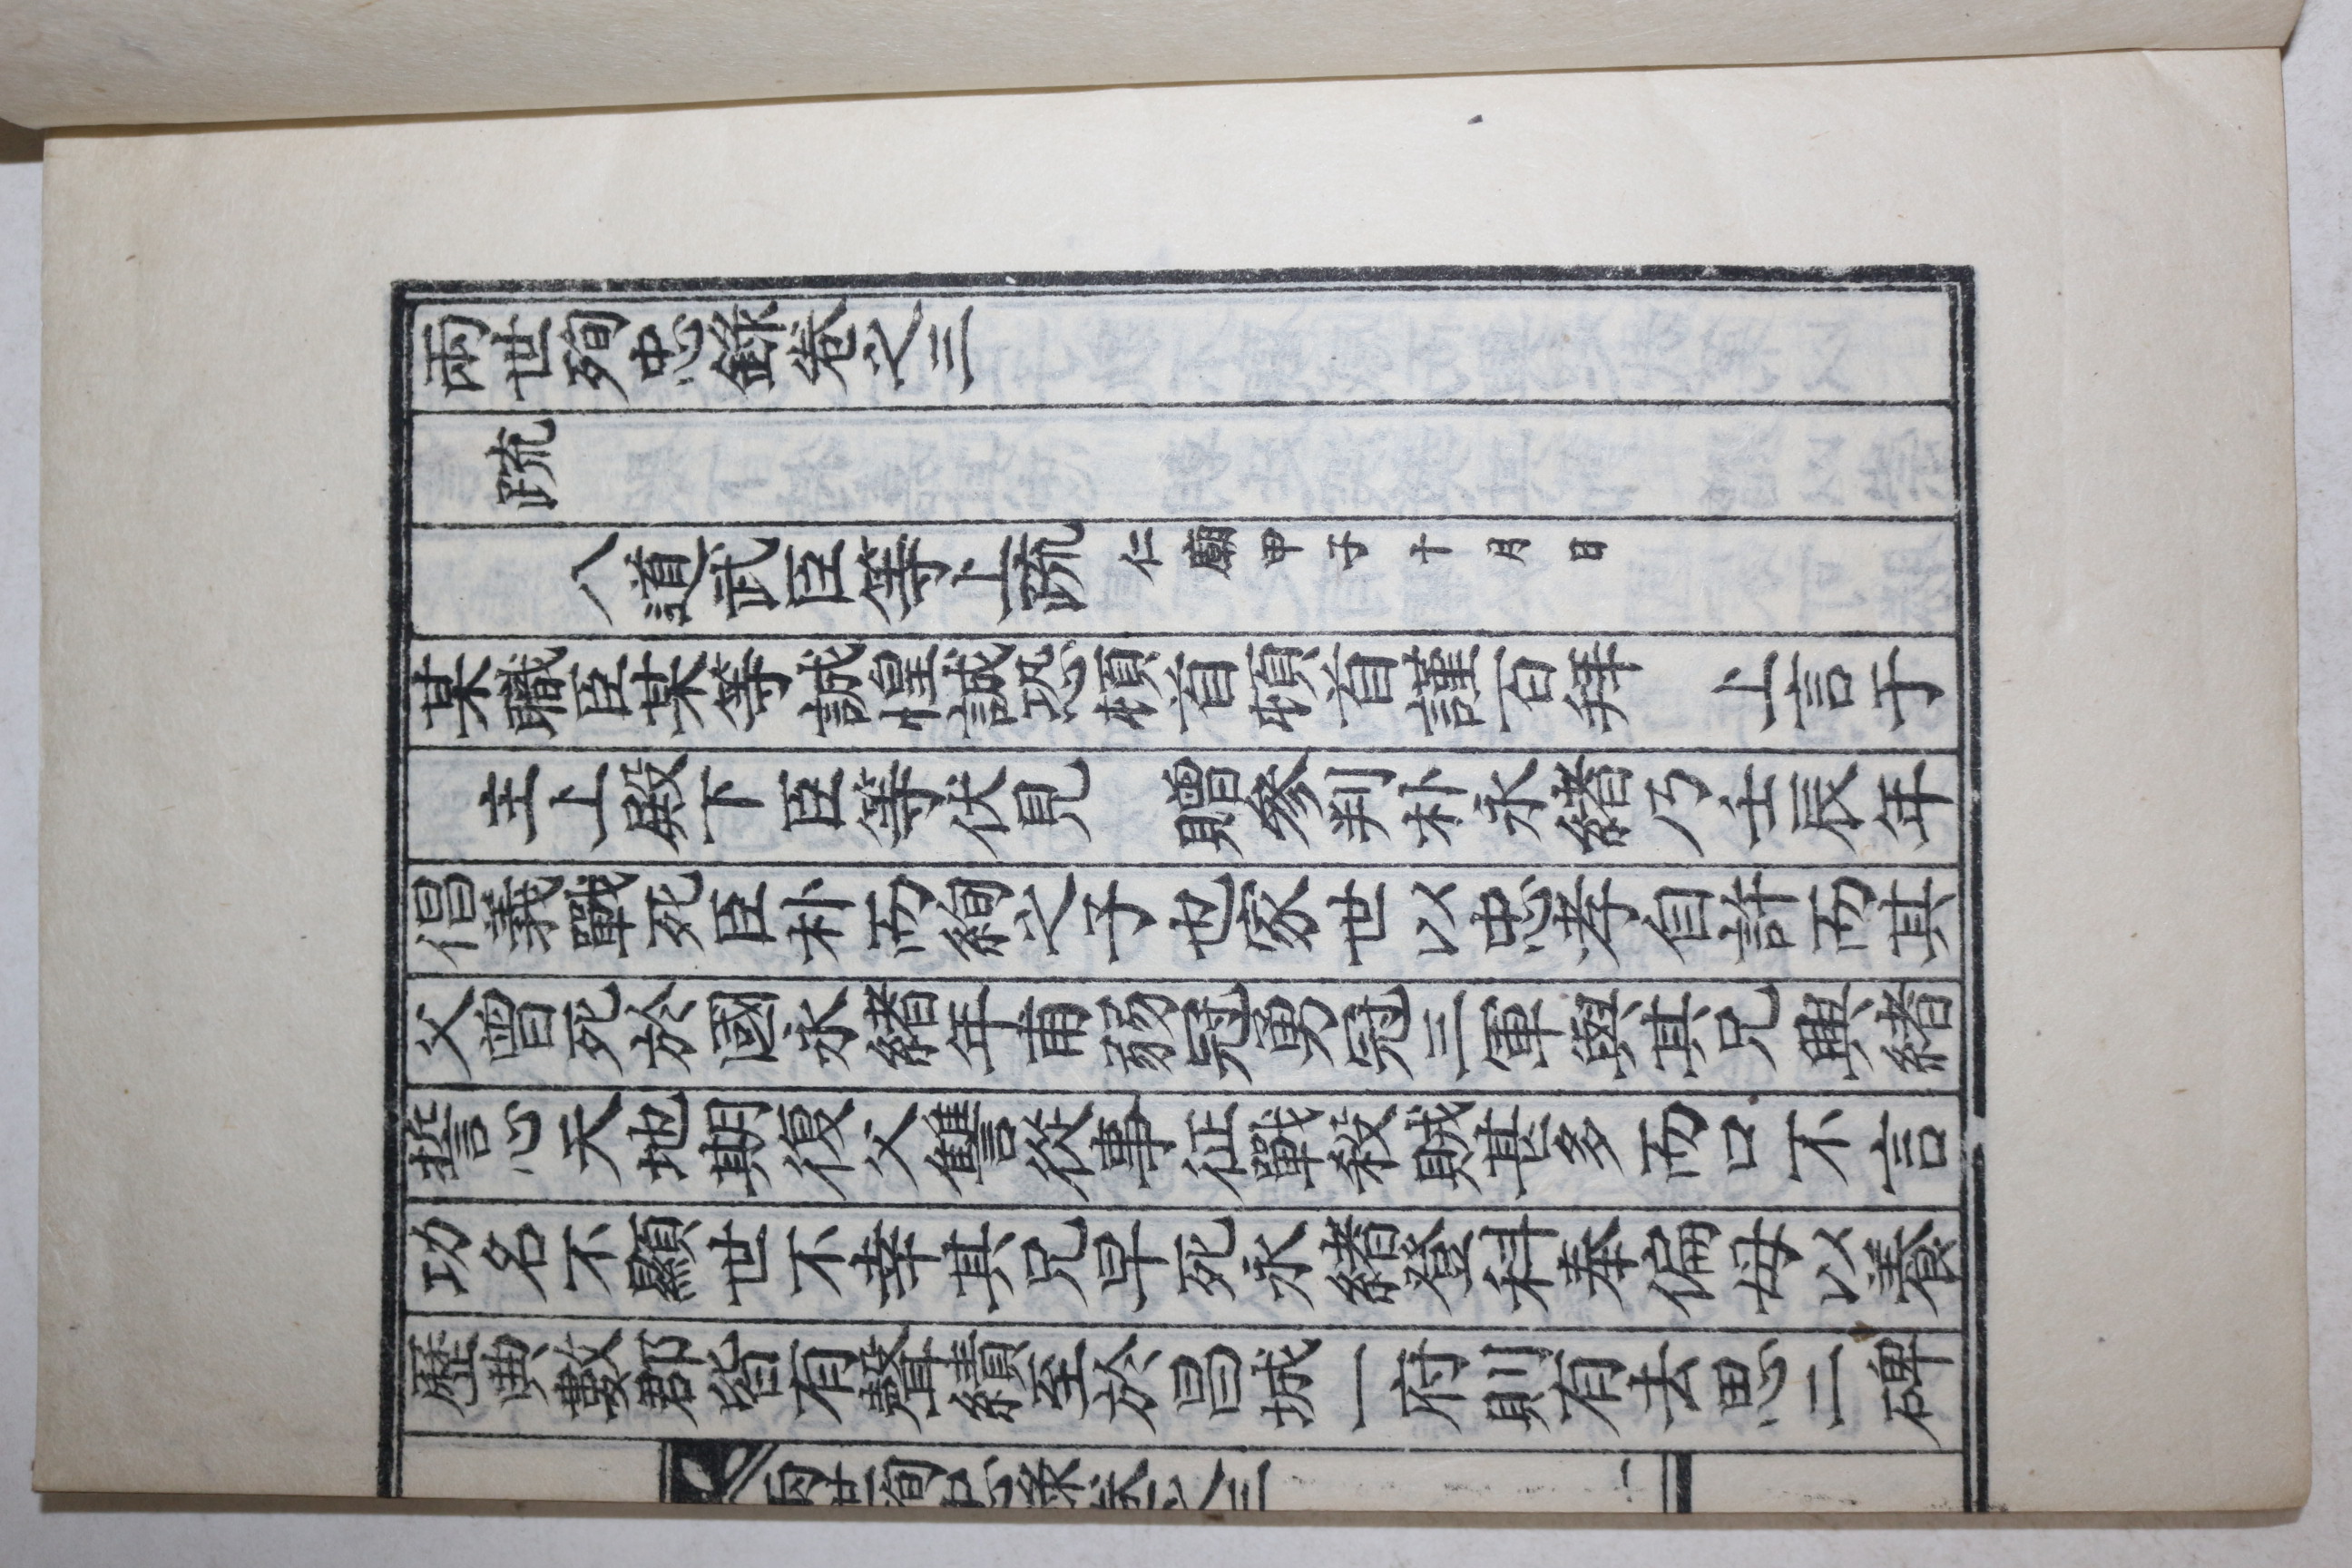 兩世殉忠錄卷之三
疏
八道武臣等上疏 仁廟甲子十月日
某職臣某等誠惶誠恐頓首頓首謹百拜 上言于
主上殿下臣等伏見 贈參判朴永緖乃壬辰年
倡義戰死臣朴而絢之子也家世以忠孝自許而其
父曾死於國永緖年甫弱冠勇冠三軍與其兄興緖
誓心天地期復父讎從事征戰殺賊甚多而口不言
功名不顯世不幸其兄早死永緖登科奉偏母以養
歷典數郡皆有聲績至於昌城一府則有去思二碑
兩世殉忠錄卷之三